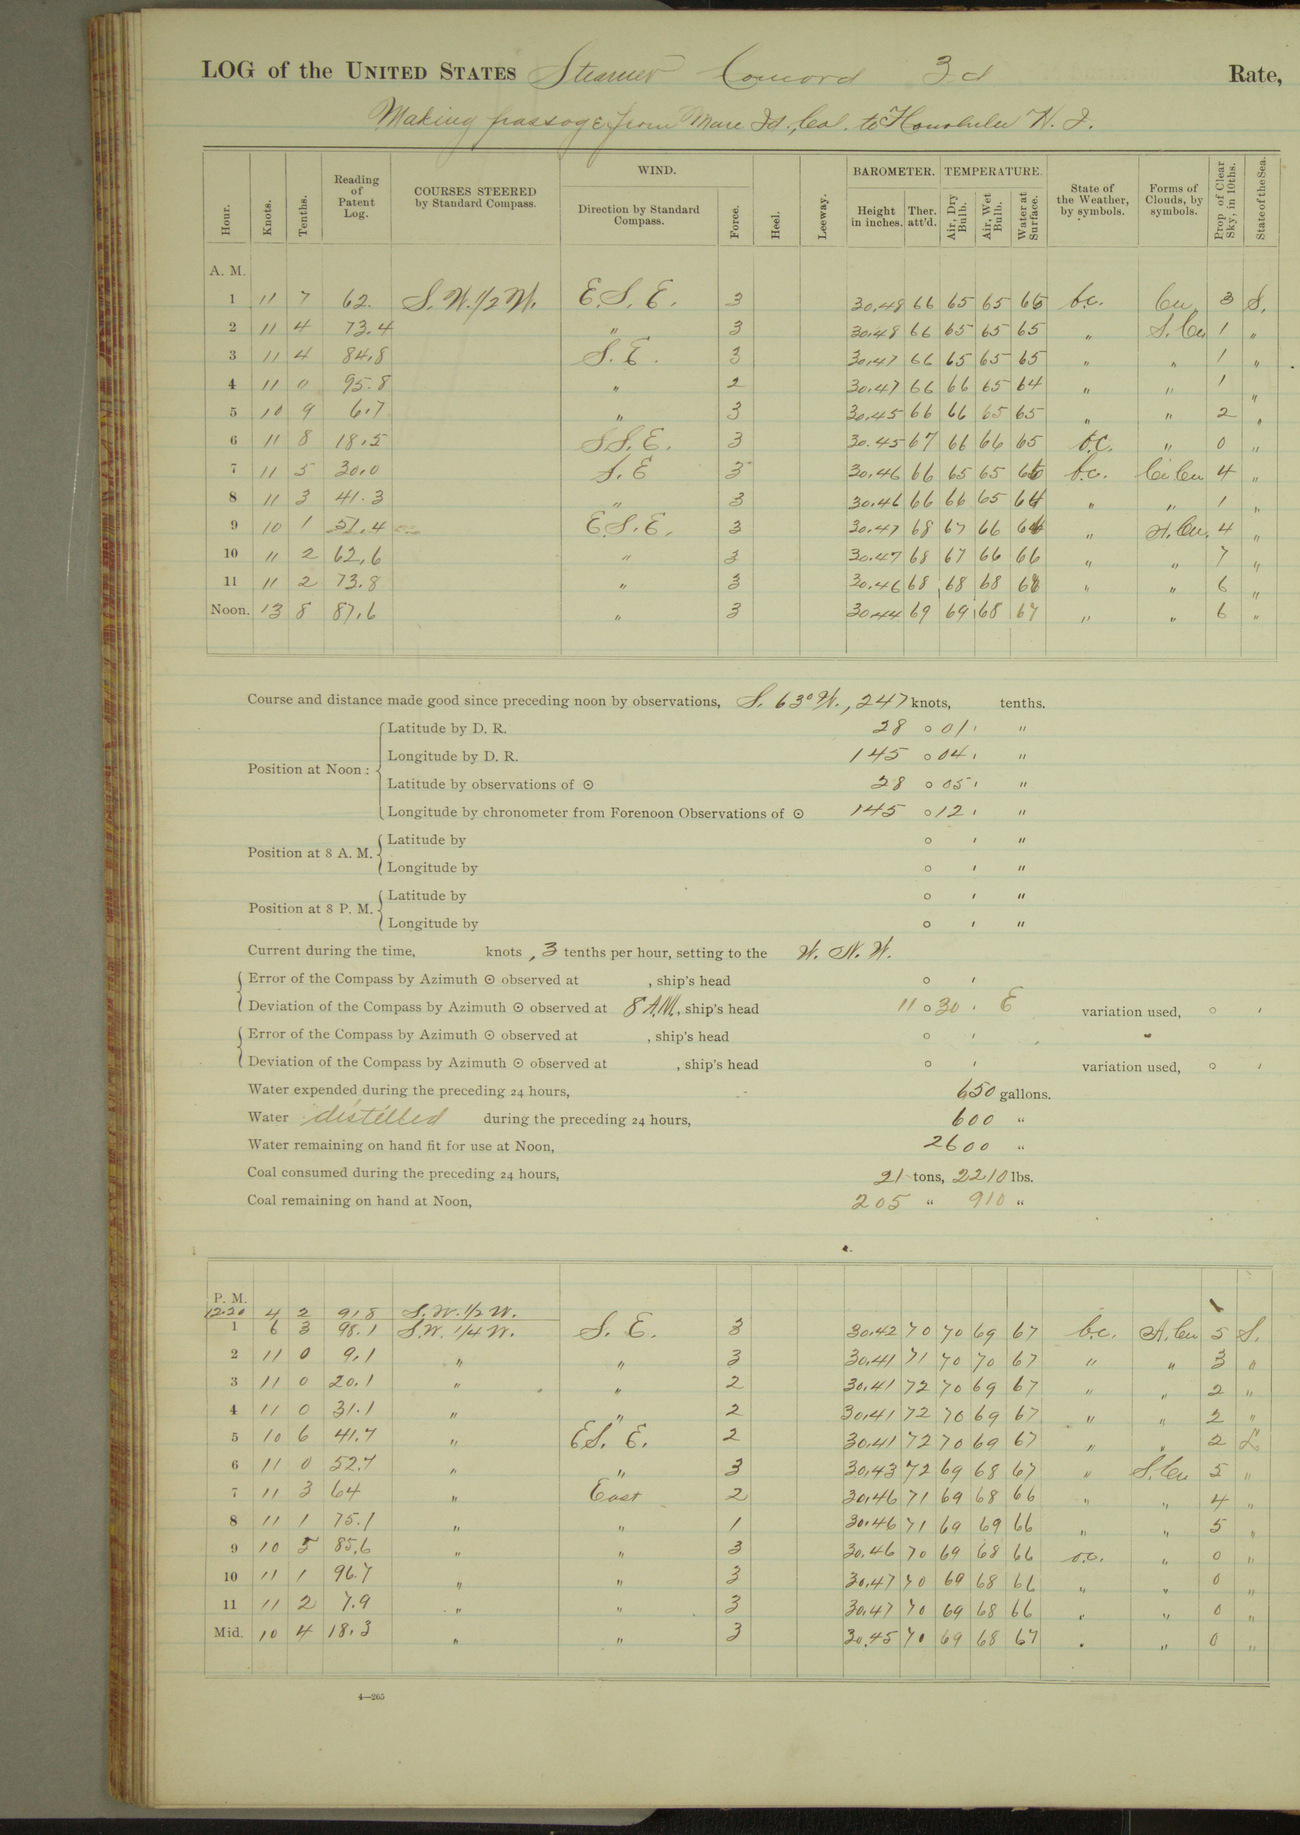 LOG of the UNITED STATES Steamer Concord 3d Rate,
Making passage from Mare Id., Cal. to Honolulu H. I.
Hour. Knots. Tenths. Reading of Patent Log. COURSES STEERED by Standard Compass. WIND. Direction by Standard Compass. Force. Heel. Leeway. BAROMETER. Height in inches. Ther. att'd. TEMPERATURE. Air, Dry Bulb. Air, Wet Bulb. Water at Surface. State of the Weather, by symbols. Forms of Clouds, by symbols. Prop. of Clear Sky, in 10ths. State of the Sea.
A. M.
1 11 7 62. S. W. 1/2 W. E. S. E. 3 30.48 66 65 65 65 b.c. Cu 3 S.
2 11 4 73.4 " 3 30.48 66 65 65 65 " S. Cu 1 "
3 11 4 84.8 S. E. 3 30.47 66 65 65 65 " " 1 "
4 11 " 95.8 " 2 30.47 66 66 65 64 " " 1 "
5 10 9 6.7 " 3 30.45 66 66 65 65 " " 2 "
6 11 8 18.5 S.S. E. 3 30.45 67 66 66 65 o.c. " 0 "
7 11 5 30.0 S. E 3 30.46 66 65 65 65 b.c. Ci Cu 4 "
8 11 3 41.3 " 3 30.46 66 66 65 64 " " 1 "
9 10 1 51.4 E. S. E. 3 30.47 68 67 66 64 " A. Cu. 4 "
10 11 2 62.6 " 3 30.47 68 67 66 66 " " 7 "
11 11 2 73.8 " 3 30.46 68 68 68 68 " " 6 "
Noon. 13 8 87.6 " 3 30.44 69 69 68 67 " " 6 "
Course and distance made good since preceding noon by observations, S. 63° W., 247 knots, tenths.
Position at Noon: Latitude by D. R. 28 ° 01 ' "
Longitude by D. R. 145 ° 04 ' "
Latitude by observations of ⊙ 28 ° 05 ' "
Longitude by chronometer from Forenoon Observations of ⊙ 145 ° 12 ' "
Position at 8 A. M. Latitude by ° ' "
Longitude by ° ' "
Position at 8 P. M. Latitude by ° ' "
Longitude by ° ' "
Current during the time, knots , 3 tenths per hour, setting to the W. N. W.
Error of the Compass by Azimuth ⊙ observed at , ship's head ° '
Deviation of the Compass by Azimuth ⊙ observed at 8 A.M., ship's head 11 ° 30 ' E variation used, ° '
Error of the Compass by Azimuth ⊙ observed at , ship's head ° '
Deviation of the Compass by Azimuth ⊙ observed at , ship's head ° ' variation used, ° '
Water expended during the preceding 24 hours, 650 gallons.
Water distilled during the preceding 24 hours, 600 "
Water remaining on hand fit for use at Noon, 2600 "
Coal consumed during the preceding 24 hours, 21 tons, 2210 lbs.
Coal remaining on hand at Noon, 205 " 910 "
P. M.
12.20 4 2 91.8 S. W. 1/2 W.
1 6 3 98.1 S.W. 1/4 W. S. E. 3 30.42 70 70 69 67 b.c. A. Cu 5 S.
2 11 0 9.1 " " 3 30.41 71 70 70 67 " " 3 "
3 11 0 20.1 " " 2 30.41 72 70 69 67 " " 2 "
4 11 0 31.1 " " 2 30.41 72 70 69 67 " " 2 "
5 10 6 41.7 " E S. E. 2 30.41 72 70 69 67 " " 2 L
6 11 0 52.7 " " 3 30.43 72 69 68 67 " S. Cu 5 "
7 11 3 64 " East 2 30.46 71 69 68 66 " " 4 "
8 11 1 75.1 " " 1 30.46 71 69 69 66 " " 5 "
9 10 5 85.6 " " 3 30.46 70 69 68 66 o.c. " 0 "
10 11 1 96.7 " " 3 30.47 70 69 68 66 " " 0 "
11 11 2 7.9 " " 3 30.47 70 69 68 66 " " 0 "
Mid. 10 4 18.3 " " 3 30.45 70 69 68 67 " " 0 "
4—265